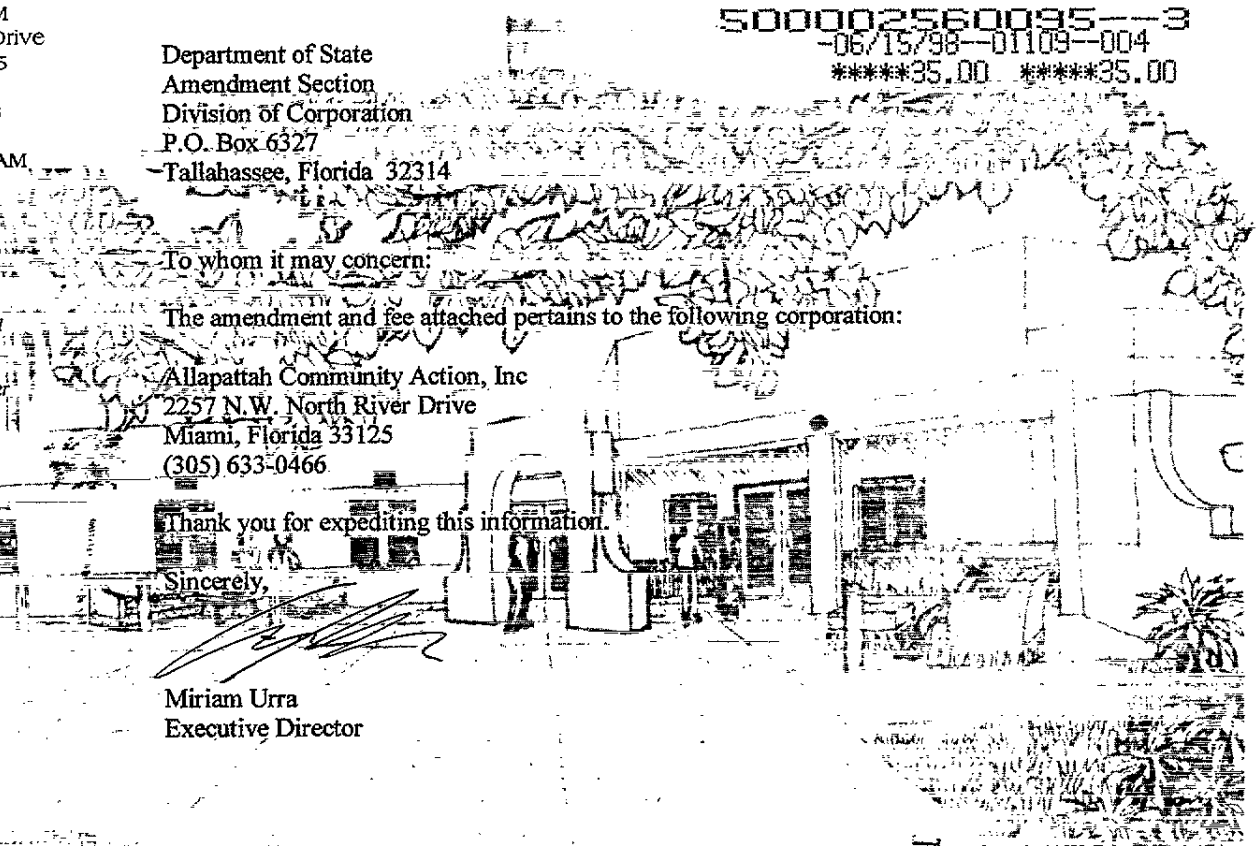 500002560095--3
-06/15/98--01109--004
*****35.00 *****35.00
Drive
5
AM
Department of State
Amendment Section
Division of Corporation
P.O. Box 6327
Tallahassee, Florida 32314
To whom it may concern:
The amendment and fee attached pertains to the following corporation:
Allapattah Community Action, Inc
2257 N.W. North River Drive
Miami, Florida 33125
(305) 633-0466
Thank you for expediting this information.
Sincerely,
Miriam Urra
Executive Director